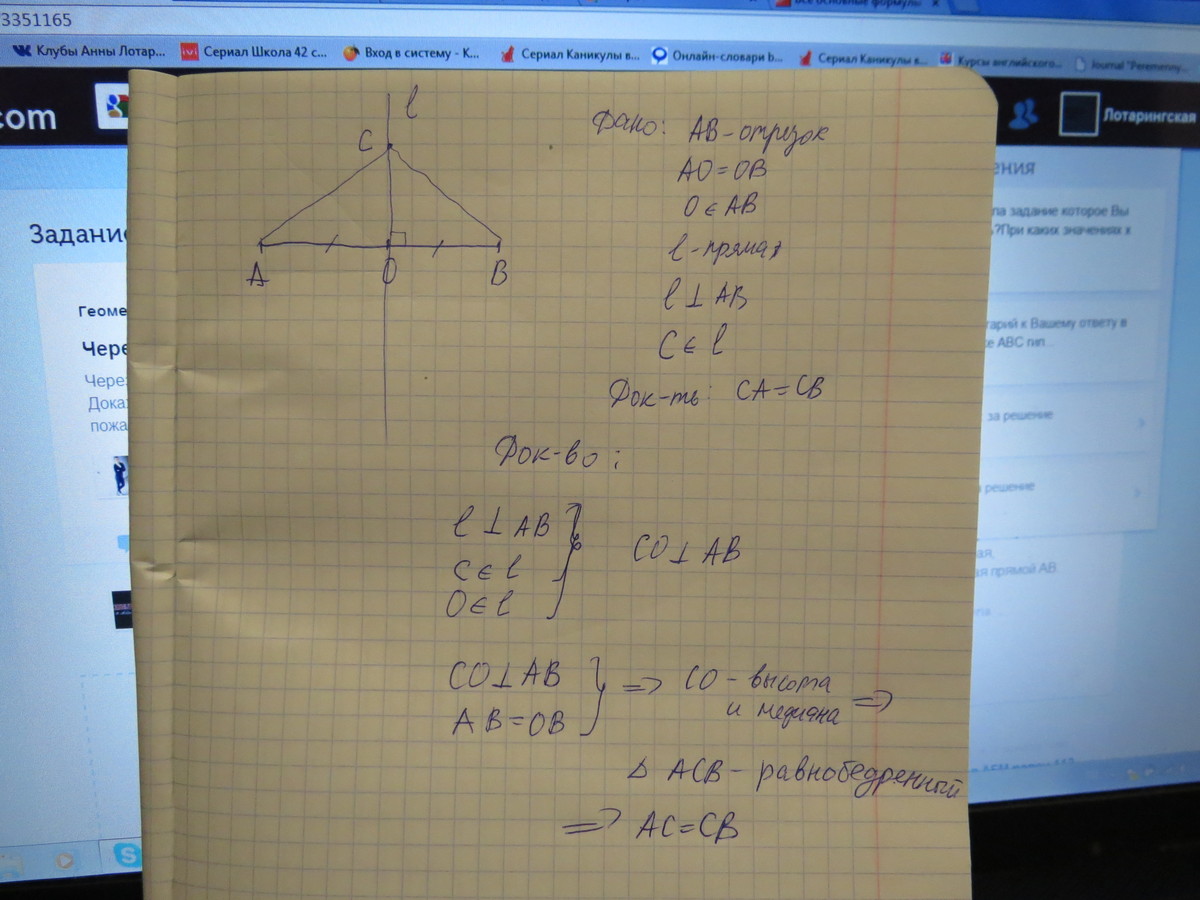 3351165
Клубы Анны Лотар...
Сериал Школа 42 с...
Вход в систему - К...
Сериал Каникулы в...
Онлайн-словари b...
Сериал Каникулы к...
Курсы английского...
Journal "Peremenny...
com
Лотарингская
Задание
Геоме
Чере
Чере
Дока
пожа
ения
ла задание которое Вы
?При каких значениях x
тарий к Вашему ответу в
ке ABC
за решение
решение
ая прямой AB.
l
C
A
O
B
Дано: AB - отрезок
AO = OB
O ∈ AB
l - прямая
l ⊥ AB
C ∈ l
Док-ть: CA = CB
Док-во:
l ⊥ AB
C ∈ l
O ∈ l
CO ⊥ AB
CO ⊥ AB
AB = OB
=> CO - высота
и медиана =>
Δ ACB - равнобедренный
=> AC = CB